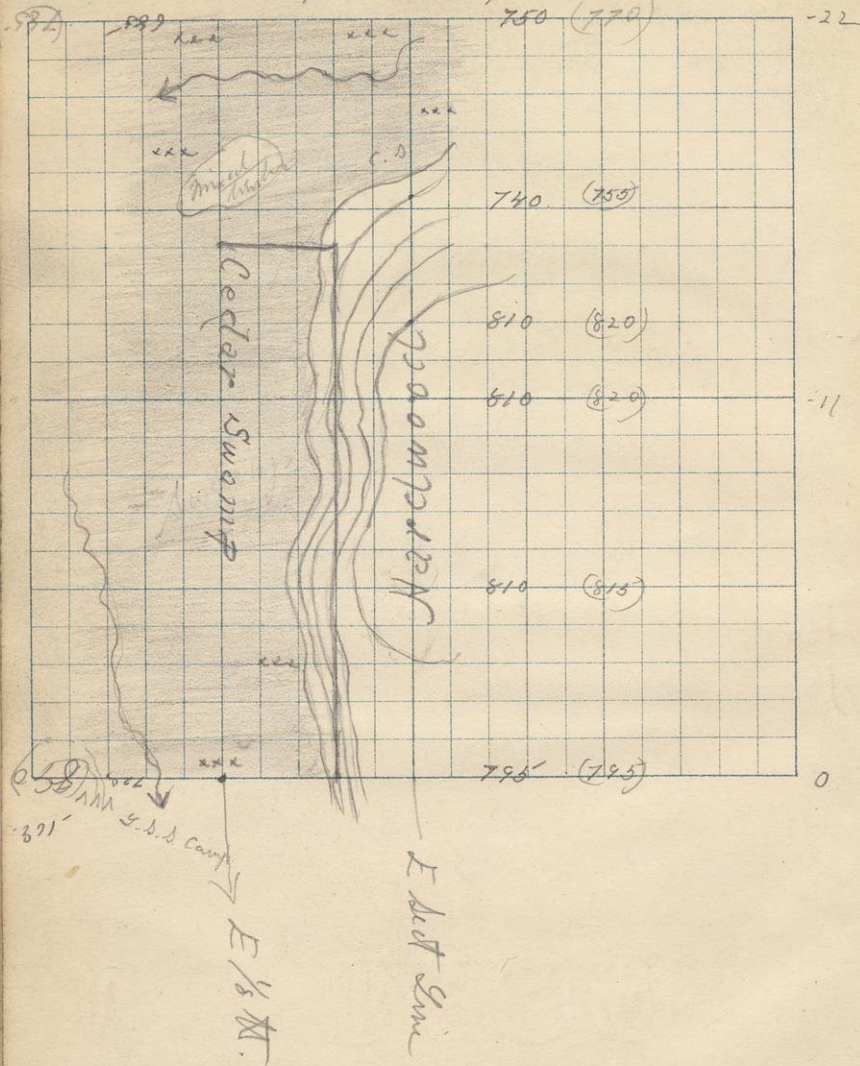 750 (770)
-22
xxx xxx
xxx
xxx
Mixed timber
740 (755)
Cedar Swamp
Hardwood
810 (820)
810 (820)
-11
810 (815)
xxx
xxx
795 (795)
0
Camp
E 1/8
E Sect Line